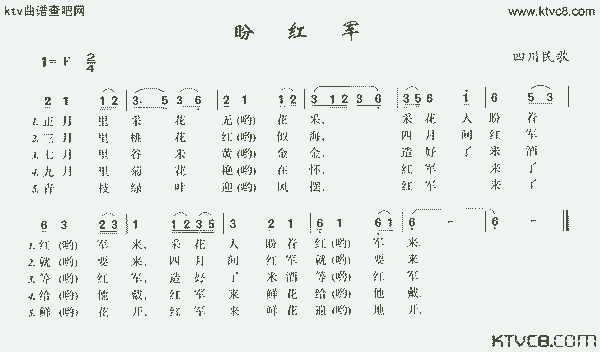 ktv曲谱查吧网
www.ktvc8.com
盼 红 军
1=F 2/4
四川民歌
2 1 1 2 3. 5 3 6 2 1 1 2 3 1 2 3 6 3 5 6 1 6 5 3
1.正月里采花无(哟)花采, 采花人盼着
2.三月里桃花红(哟)似海, 四月间红军
3.七月里谷米黄(哟)金金, 造好了米酒
4.九月里菊花艳(哟)在怀, 红军来了
5.青枝绿叶迎(哟)风摆, 红军来了
6 3 2 3 1 1 2 3 5 3 2 1 6 1 6 1 6 - 6 -
1.红(哟)军来, 采花人盼着红(哟)军来.
2.就(哟)要来, 四月间红军就(哟)要来
3.等(哟)红军, 造好了米酒等(哟)红军
4.给(哟)他戴, 红军来鲜花给(哟)他戴.
5.鲜(哟)花开, 红军来鲜花遍(哟)地开.
KTVC8.COM